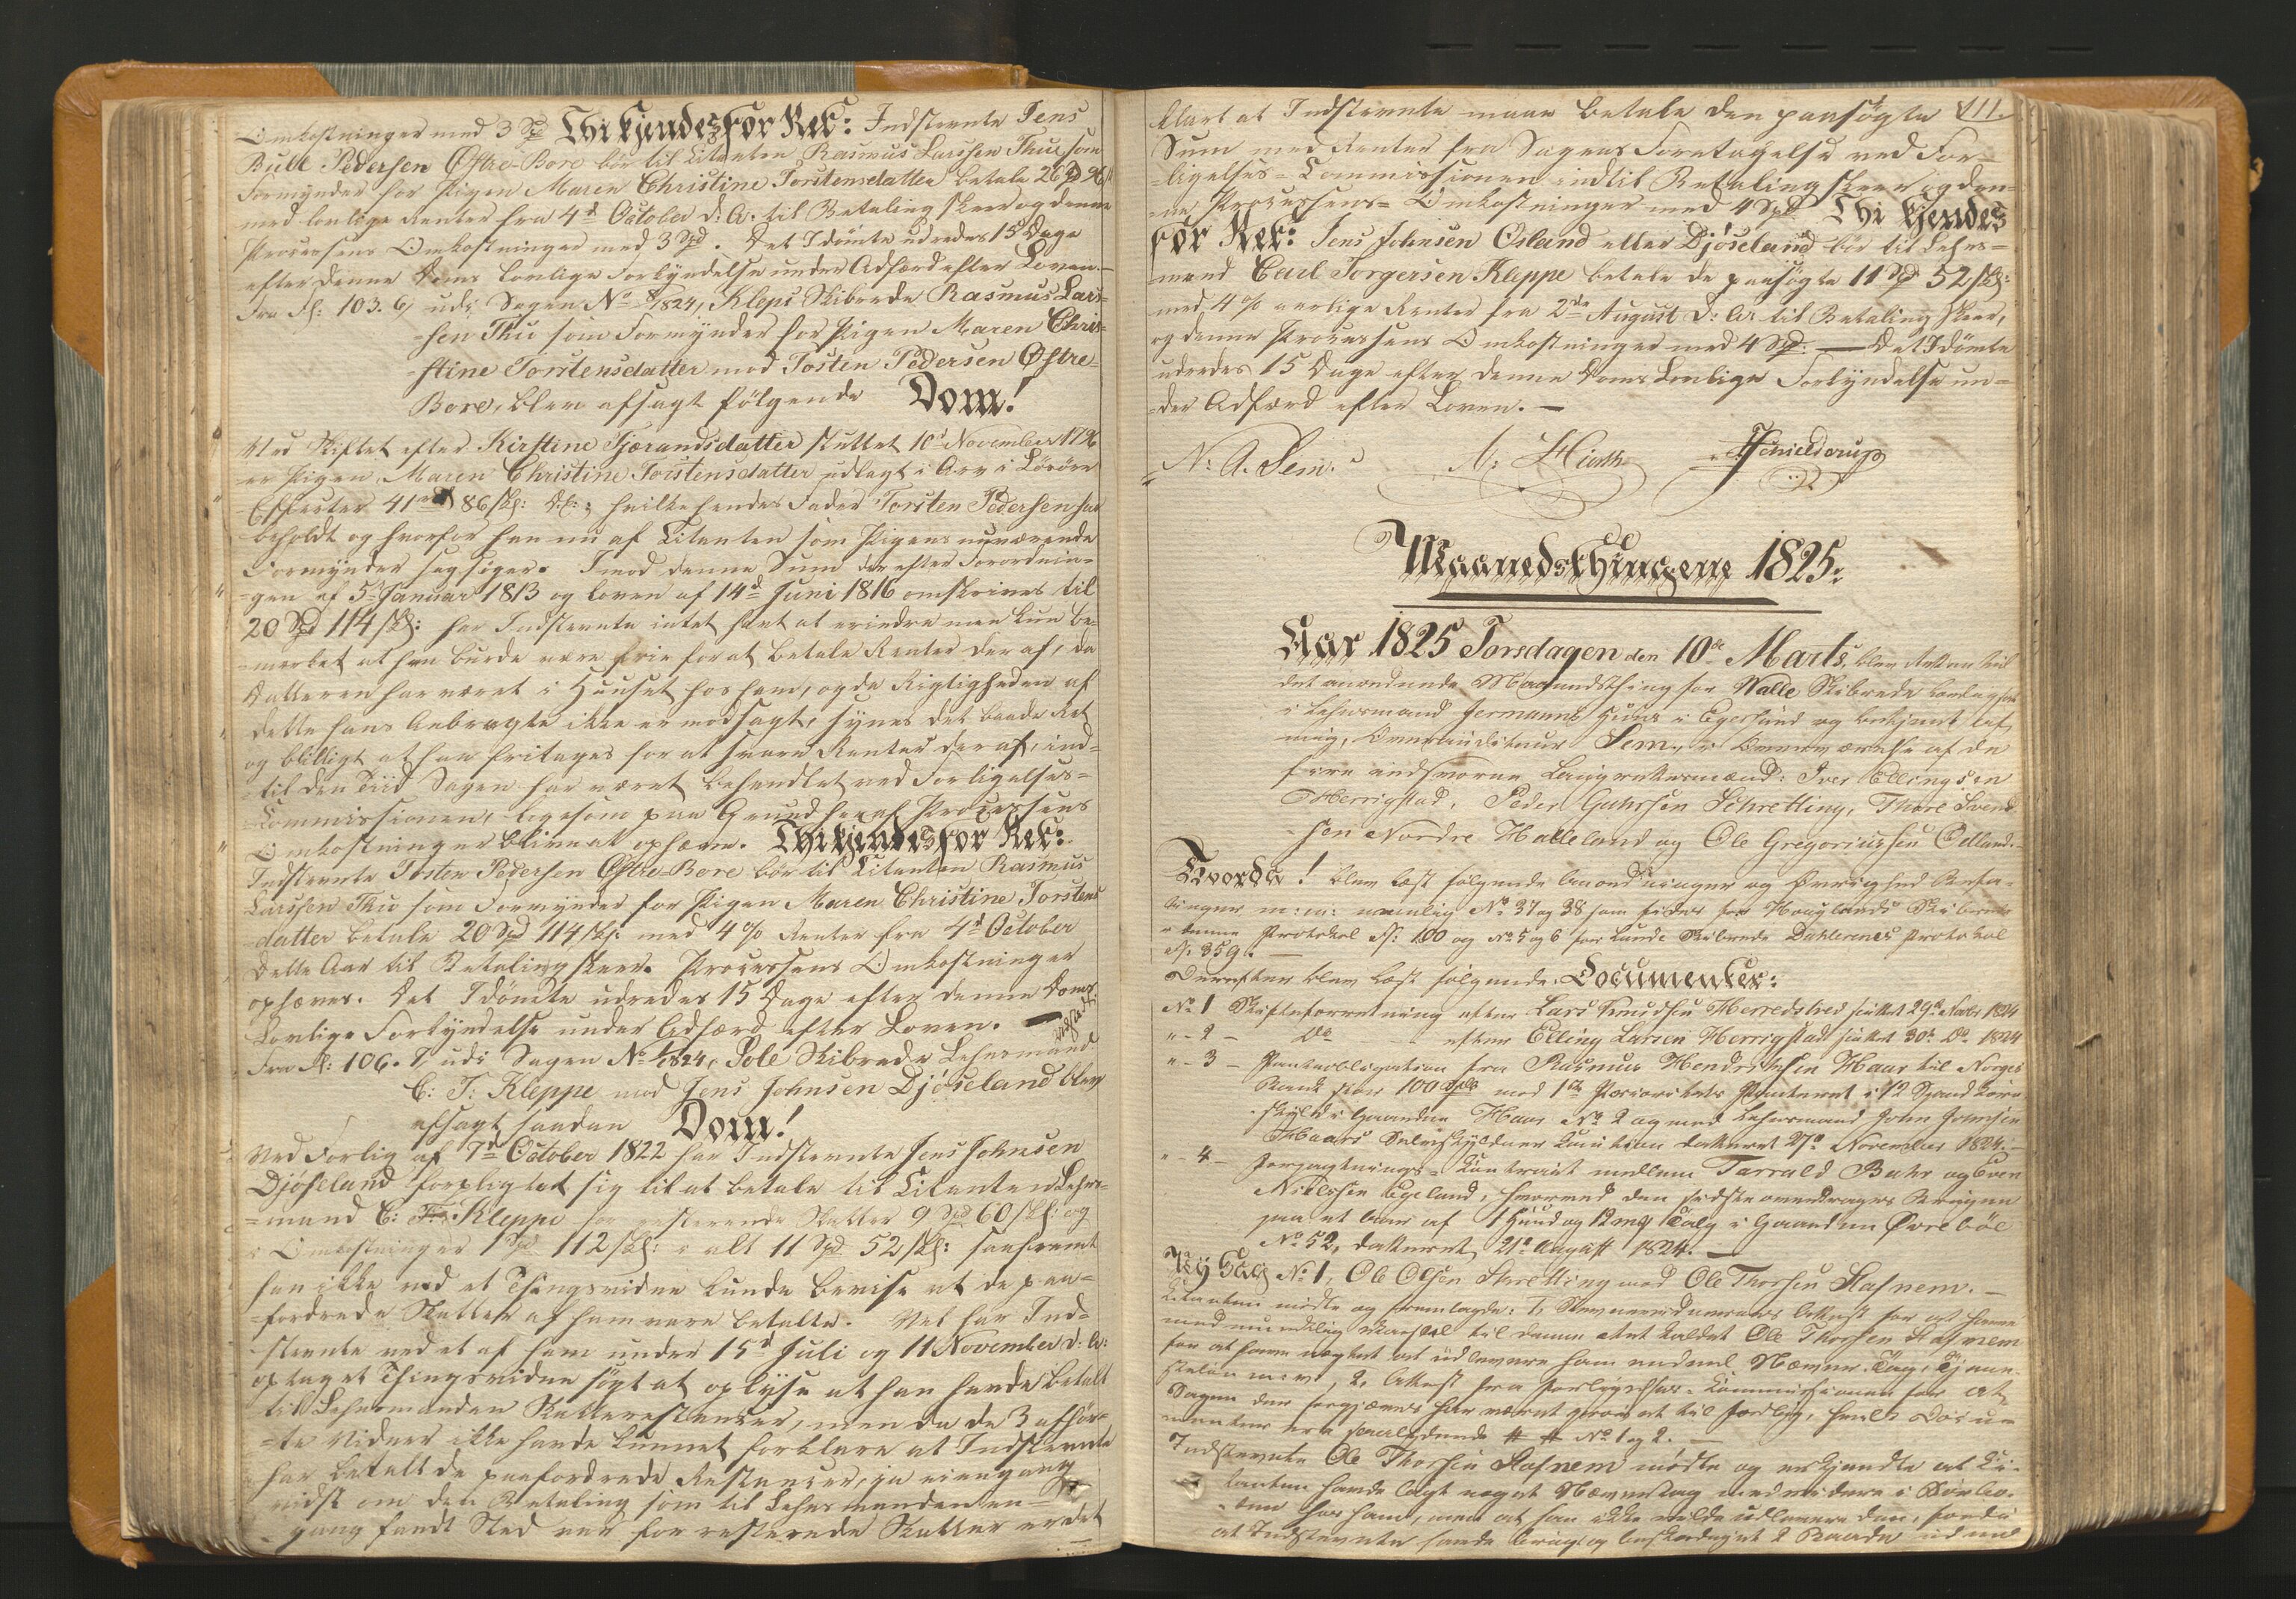 Omkostninger med 3 Spd Thi kjendes for Ret: Indstevnte Jens
Bull Pedersen Østre-Bore bör til Citanten Rasmus Larssen Thue som
Formynder for Pigen Maren Christine Torstensdatter betale 26 Spd 96 s
med lovlige Renter fra 4d October d: A. til Betaling skeer og denne
Processens Omkostninger med 3 Spd. Det Idömte udredes 15 Dage
efter denne Doms lovlige Forkyndelse under Adfærd efter Loven.—
Fra Fl: 103. 6, udi Sagen No /1824, Kleps Skibrede Rasmus Lars-
=sen Thu som Formynder for Pigen Maren Chris-
=stine Torstensdatter mod Tosten Pedersen Østre-
Bore, blev afsagt følgende Dom!
Ved Skiftet efter Kirstine Tjærandsdatter sluttet 10d November 1796
er Pigen Maren Christine Torstensdatter udlagt i Arv i Lösöre
Effecter 41 rd 86 skl: D:C:, hvilke hendes Fader Torsten Pedersen har
beholdt og hvorfor han nu af Citanten som Pigens nuværende
Formynder sagsöges. Imod denne Sum der efter Forordnin-
=gen af 5 Januar 1813 og Loven af 14d Juni 1816 omskrives til
20 Spd 114 skl: har Indstevnte intet havt at erindre men kun be-
=mærket at han burde være frie for at betale Renter deraf, da
Datteren har været i Huuset hos ham, og da Rigtigheden af
dette hans Anbragte ikke er modsagt, synes det baade Ret
og billigt at han fritages for at svare Renter deraf, ind-
=til den Tiid Sagen har været behandlet ved Forligelses-
=Commissionen, ligesom paa Grund heraf Processens
Omkostninger bliver at ophæve. Thi kjendes for Ret:
Indstevnte Tosten Pedersen Østre-Bore bör til Citanten Rasmus
Larssen Thu som Formynder for Pigen Maren Christine Torstens
datter betale 20 Spd 114 skl: med 4 % Renter fra 4d October
dette Aar til Betaling skeer. Processens Omkostninger
ophæves. Det Idömte udredes 15 Dage efter denne Doms
Lovlige Forkyndelse under Adfærd efter Loven. —
Fra Fl: 106. 7, udi Sagen No /1824, Sole Skibrede Lehnsmand
C: T: Kleppe mod Jens Johnsen Djöseland blev
afsagt saadan Dom!
Ved Forlig af 7d October 1822 har Indstevnte Jens Johnsen
Djöseland forpligtet sig til at betale til Citanten Lehns-
=mand C: T: Kleppe for resterende Skatter 9 Spd 60 skl: og
i Omkostninger 1 Spd 112 skl: i alt 11 Spd 52 skl: saafremt
han ikke ved et Thingsvidne kunde bevise at de paa-
=fordrede Skatter af ham vare betalte. Vel har Ind-
stevnte ved et af ham under 15d Juli og 11 November d: A:
optaget Thingsvidne sögt at oplyse at han havde betalt
til Lehnsmanden Skatterestancer, men da de 3 afhör-
=te Vidner ikke havde kunnet forklare at Indstevnte
har betalt de paafordrede Restancer, ja eiengang
vidst om den Betaling som til Lehnsmanden en-
gang fandt Sted var for resterende Skatter er det
111.
klart at Indstevnte maae betale den paasögte
Sum med Renter fra Sagens Foretagelse ved For-
=ligelses-Commissionen indtil Betaling skeer og den-
ne Processens- Omkostninger med 4 Spd Thi kjendes
for Ret: Jens Johnsen Ósland eller Djöseland bör til Lehns-
mand Carl Torgersen Kleppe betale de paasögte 11 Spd 52 skl:
med 4 % aarlige Renter fra 2de August d: A: til Betaling skeer,
og denne Processens Omkostninger med 4 Spd: — Det Idömte
udredes 15 Dage efter denne Doms Lovlige Forkyndelse un-
=der Adfærd efter Loven. —
N: A. Sem. Hiorth Schielderup
Maanedsthingene 1825.
Aar 1825 Torsdagen den 10de Marts, blev Retten til
det anordnede Maanedsthing for Nalle Skibrede
i Lehnsmand Jermanns Huus i Egersund og betjent af
mig, Overauditeur Sem, i Overværelse af de
fire eedsvorne Laugrettesmænd: Iver Ellingsen
Herrigstad, Peder Guhrsen Schretting, Thore Svend
sen Nordre Halleland og Ole Gregoriussen Edland.
Hvorda! blev læst følgende Anordninger og Øvrighed Befa-
linger m: m: nemlig No 37 og 38 som findes for Houglands Skibrede
i denne Protokol Fl: 100 og No 5 og 6 for Lunde Skibrede Dahlerenes Protokol
Fl: 359. —
Derefter blev læst følgende Documenter:
No 1 Skifteforretning efter Lars Knudsen Herredstved sluttet 29de 1824
" - 2 - Do - efter Elling Larsen Herrigstad sluttet 30te Do 1824
" - 3 - Pantobligation fra Rasmus Hendrichsen Haar til Norges
Bank stor 100 Spdlr mod 1ste Prioritets Panteret i 12 Spand Korn
skyld i Gaarden Haar No 2 og med Lehnsmand John Johnsen
Haars Selvskyldner Caution dateret 27de November 1824. —
" - 4 - Forpagtnings-Contract mellem Tarrald Buhr og Even
Nielssen Egeland, hvorved den sidste overdrages Brugen
paa et Aar af 1 Huud og 12 mrk Talg i Gaarden Övreböl
No 52, dateret 21de August 1824. —
Ny Sag No 1, Ole Olsen Skretting mod Ole Thorsen Hafnem. —
Citanten mödte og fremlagde: 1, Stevnevidnernes Attest for at have
med mundtlig Varsel til denne Ret kaldet Ole Thorsen Hafnem
for at have nægtet at udlevere ham endeel Næver-Tag,
m: v:, 2, Attest fra Forligelses-Commissionen for at
Sagen der forgjæves har været prövet til Forlig, hvilke Docu-
menter ere saalydende # # No 1 og 2. —
Indstevnte Ole Thorsen Hafnem mödte og erkjendte at Ci-
tanten havde lagt noget Nævertag med videre i
hos ham, men at han ikke vilde udlevere den, fordi
at Indstevnte havde brugt og beskadiget 2 Baade